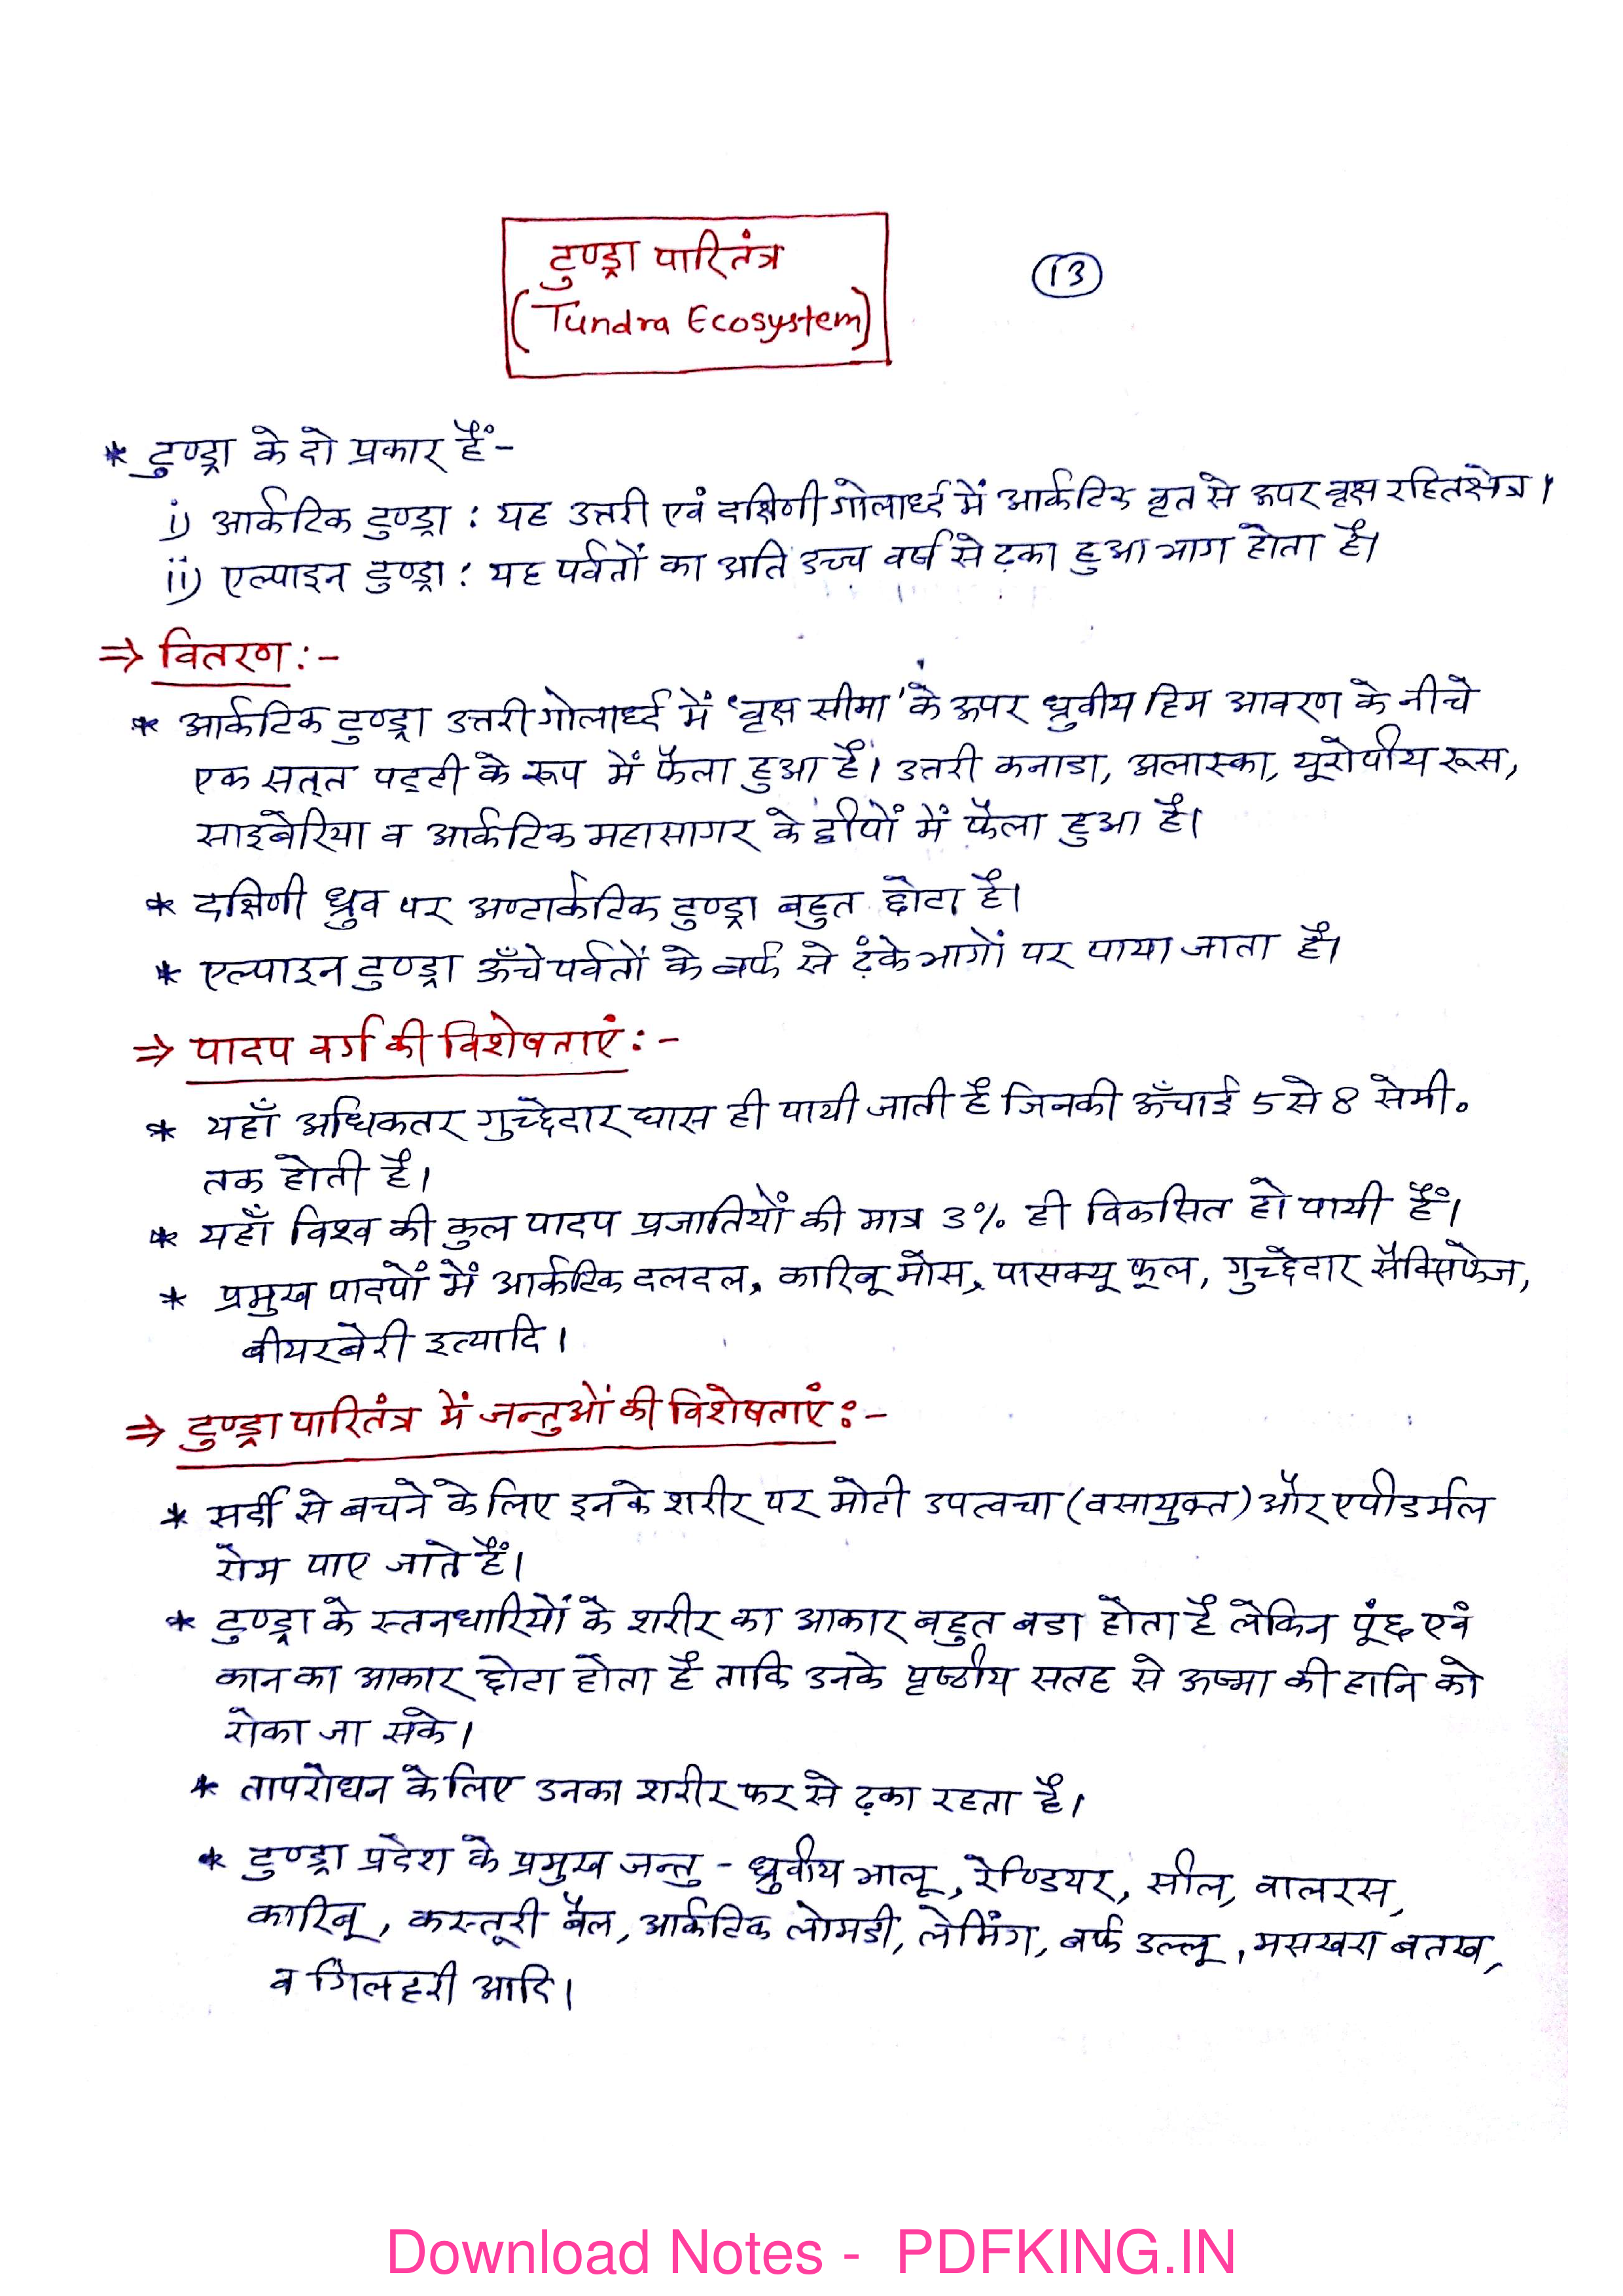 टुण्ड्रा पारितंत्र
(Tundra Ecosystem)
13
* टुण्ड्रा के दो प्रकार हैं-
i) आर्कटिक टुण्ड्रा : यह उत्तरी एवं दक्षिणी गोलार्ध्द में आर्कटिक वृत से ऊपर वृक्ष रहित क्षेत्र।
ii) एल्पाइन टुण्ड्रा : यह पर्वतों का अति उच्च वर्फ से ढ़का हुआ भाग होता है।
⇒ वितरण :-
* आर्कटिक टुण्ड्रा उत्तरी गोलार्ध्द में 'वृक्ष सीमा' के ऊपर ध्रुवीय हिम आवरण के नीचे
एक सतत पट्टी के रूप में फैला हुआ है। उत्तरी कनाडा, अलास्का, यूरोपीय रूस,
साइबेरिया व आर्कटिक महासागर के द्वीपों में फैला हुआ है।
* दक्षिणी ध्रुव पर अण्टार्कटिक टुण्ड्रा बहुत छोटा है।
* एल्पाइन टुण्ड्रा ऊँचे पर्वतों के बर्फ से ढ़ंके भागों पर पाया जाता है।
⇒ पादप वर्ग की विशेषताएं :-
* यहाँ अधिकतर गुच्छेदार घास ही पायी जाती है जिनकी ऊँचाई 5 से 8 सेमी॰
तक होती है।
* यहाँ विश्व की कुल पादप प्रजातियों की मात्र 3% ही विकसित हो पायी हैं।
* प्रमुख पादपों में आर्कटिक दलदल, कारिबू मॉस, पासक्यू फूल, गुच्छेदार सैक्सिफेज,
बीयरबेरी इत्यादि।
⇒ टुण्ड्रा पारितंत्र में जन्तुओं की विशेषताएं :-
* सर्दी से बचने के लिए इनके शरीर पर मोटी उपत्वचा (वसायुक्त) और एपीडर्मल
रोम पाए जाते हैं।
* टुण्ड्रा के स्तनधारियों के शरीर का आकार बहुत बडा होता है लेकिन पूंछ एवं
कान का आकार छोटा होता है ताकि उनके पृष्ठीय सतह से ऊष्मा की हानि को
रोका जा सके।
* तापरोधन के लिए उनका शरीर फर से ढ़का रहता है।
* टुण्ड्रा प्रदेश के प्रमुख जन्तु - ध्रुवीय भालू, रेण्डियर, सील, वालरस,
कारिबू, कस्तूरी बैल, आर्कटिक लोमडी, लेमिंग, बर्फ उल्लू, मसखरा बतख,
व गिलहरी आदि।
Download Notes - PDFKING.IN